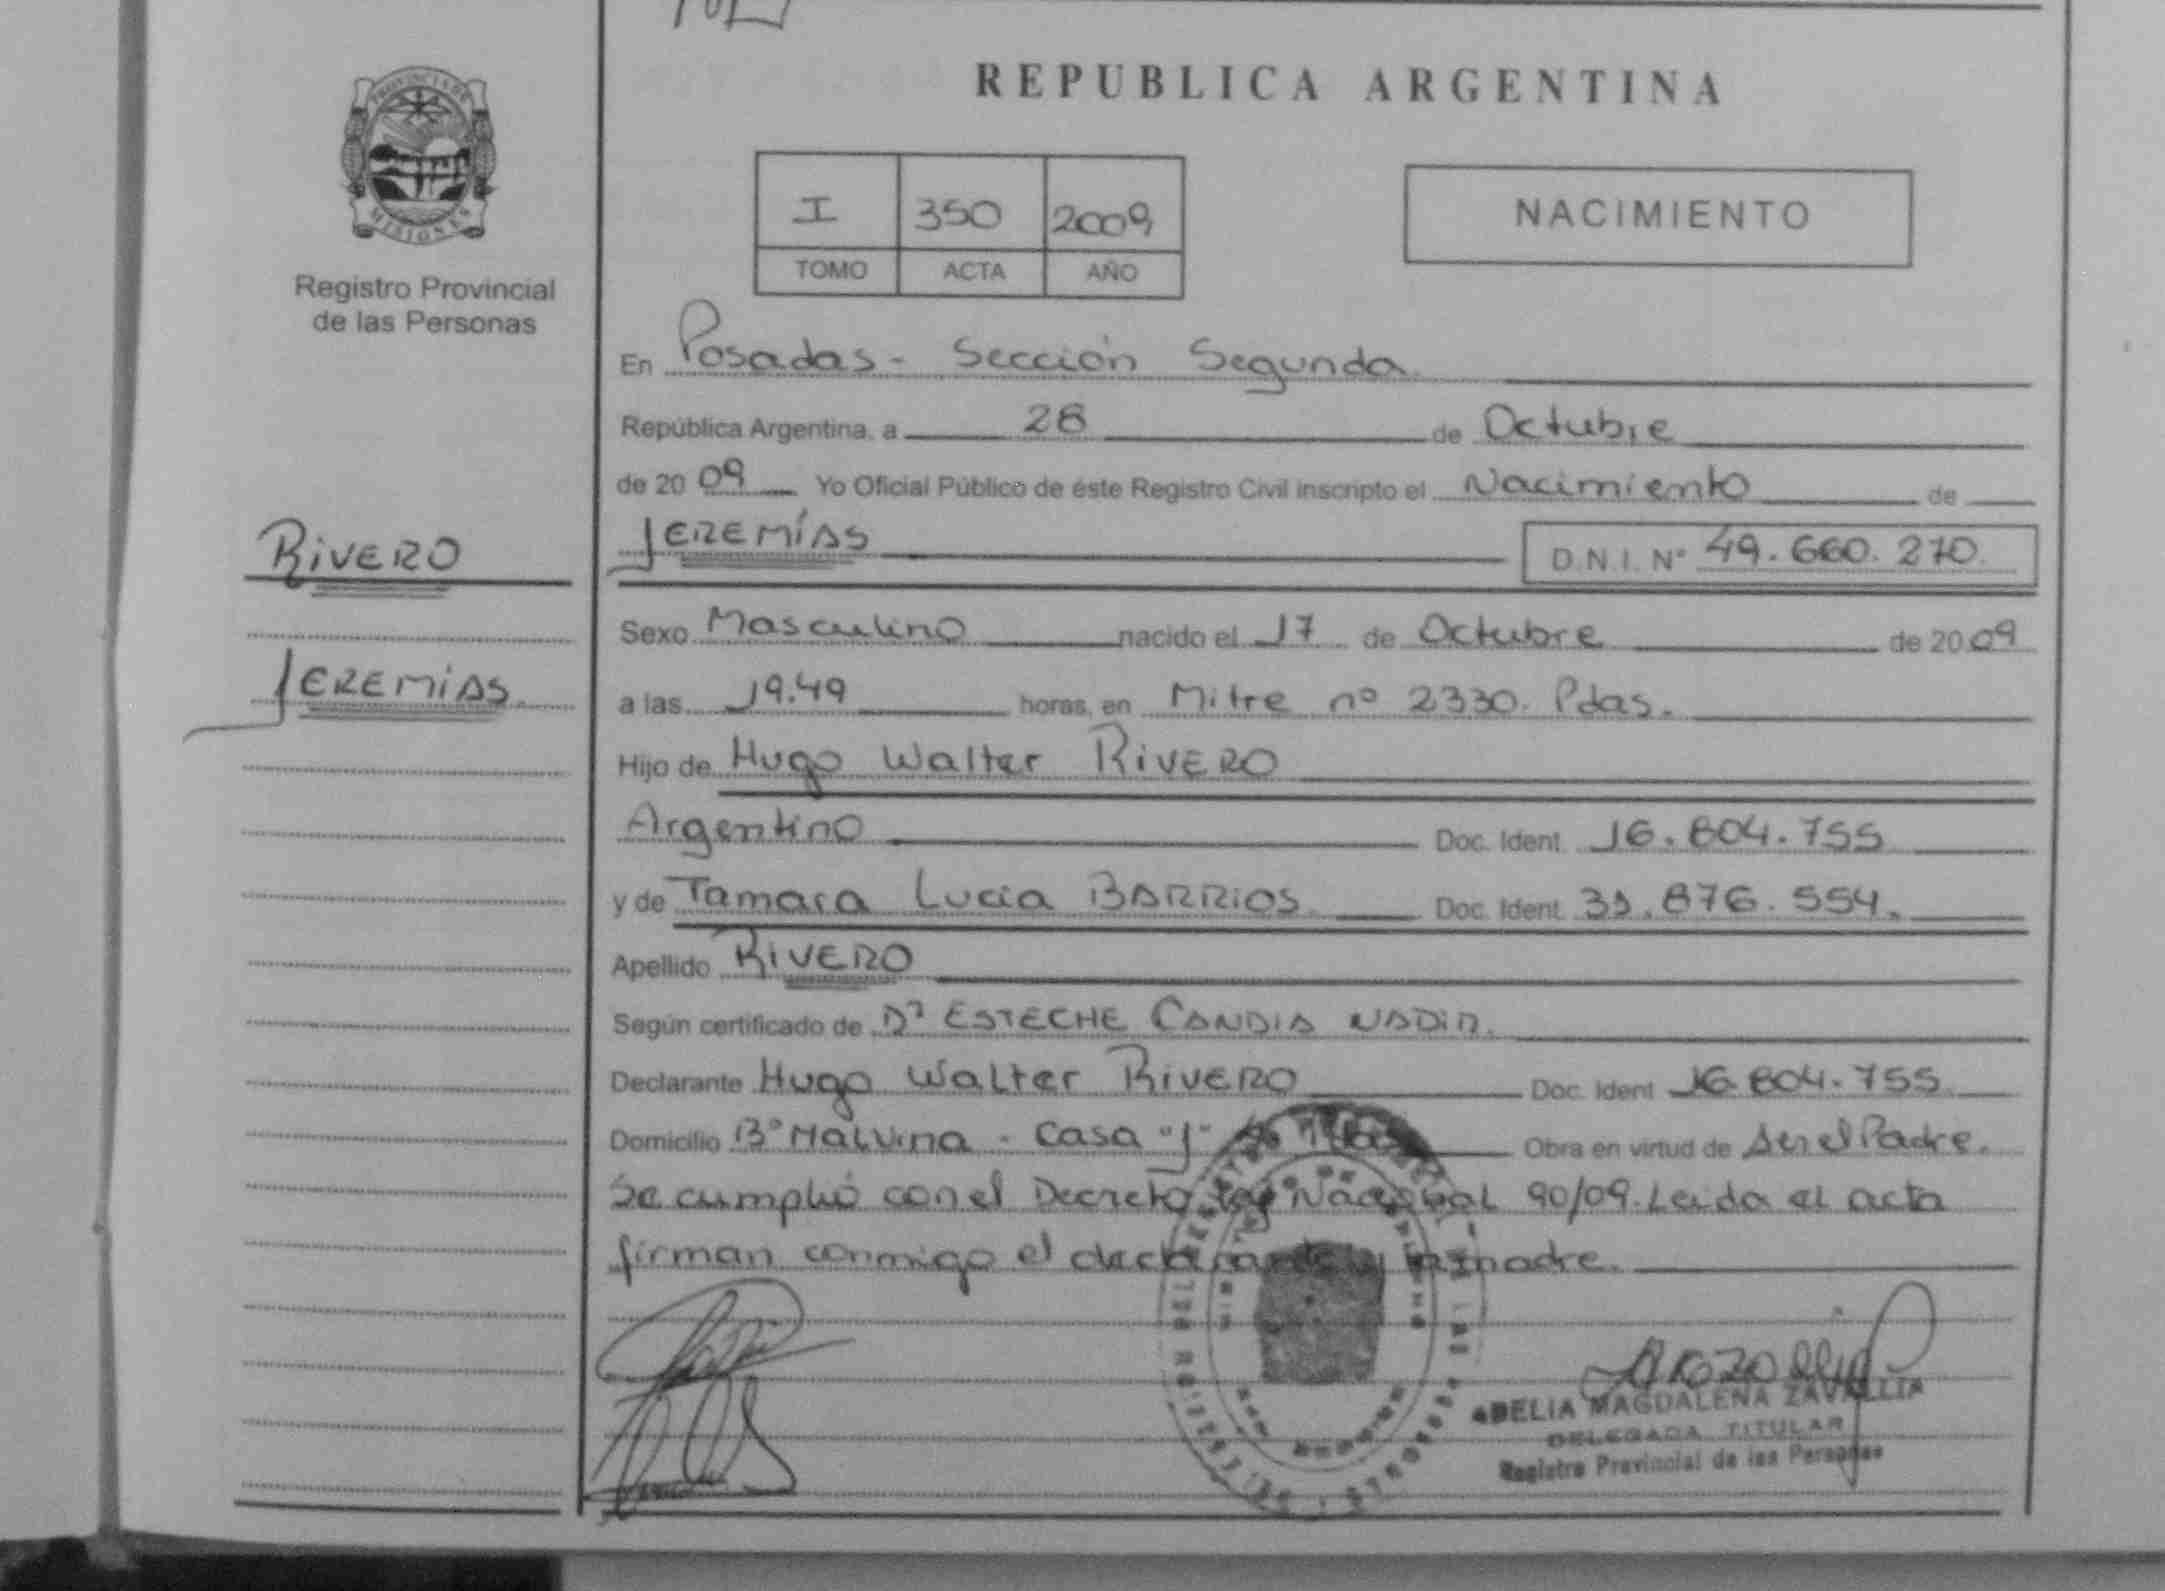 PROVINCIA DE
MISIONES
Registro Provincial
de las Personas
RIVERO
JEREMÍAS.
REPUBLICA ARGENTINA
I 350 2009
TOMO ACTA AÑO
NACIMIENTO
En Posadas - Sección Segunda
República Argentina, a 28 de Octubre
de 2009 Yo Oficial Público de éste Registro Civil inscripto el Nacimiento de
JEREMÍAS D.N.I. Nº 49.660.270.
Sexo Masculino nacido el 17 de Octubre de 2009
a las 19.49 horas, en Mitre nº 2330. Pdas.
Hijo de Hugo Walter RIVERO
Argentino Doc. Ident. 16.804.755
y de Tamara Lucia BARRIOS. Doc. Ident. 31.876.554.
Apellido RIVERO
Según certificado de Dr ESTECHE CANDIA NADIR.
Declarante Hugo Walter RIVERO Doc. Ident 16.804.755
Domicilio Bº Malvina - Casa "J" Obra en virtud de ser el Padre.
Se cumplió con el Decreto Ley Nacional 90/09. Leida el acta
firman conmigo el declarante y la madre.
ABELIA MAGDALENA ZAVALLIA
DELEGADA TITULAR
Registro Provincial de las Personas